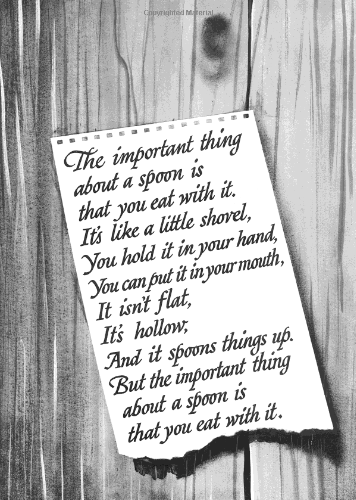 Copyrighted Material
The important thing
about a spoon is
that you eat with it.
It's like a little shovel,
You hold it in your hand,
You can put it in your mouth,
It isn't flat,
It's hollow,
And it spoons things up.
But the important thing
about a spoon is
that you eat with it.